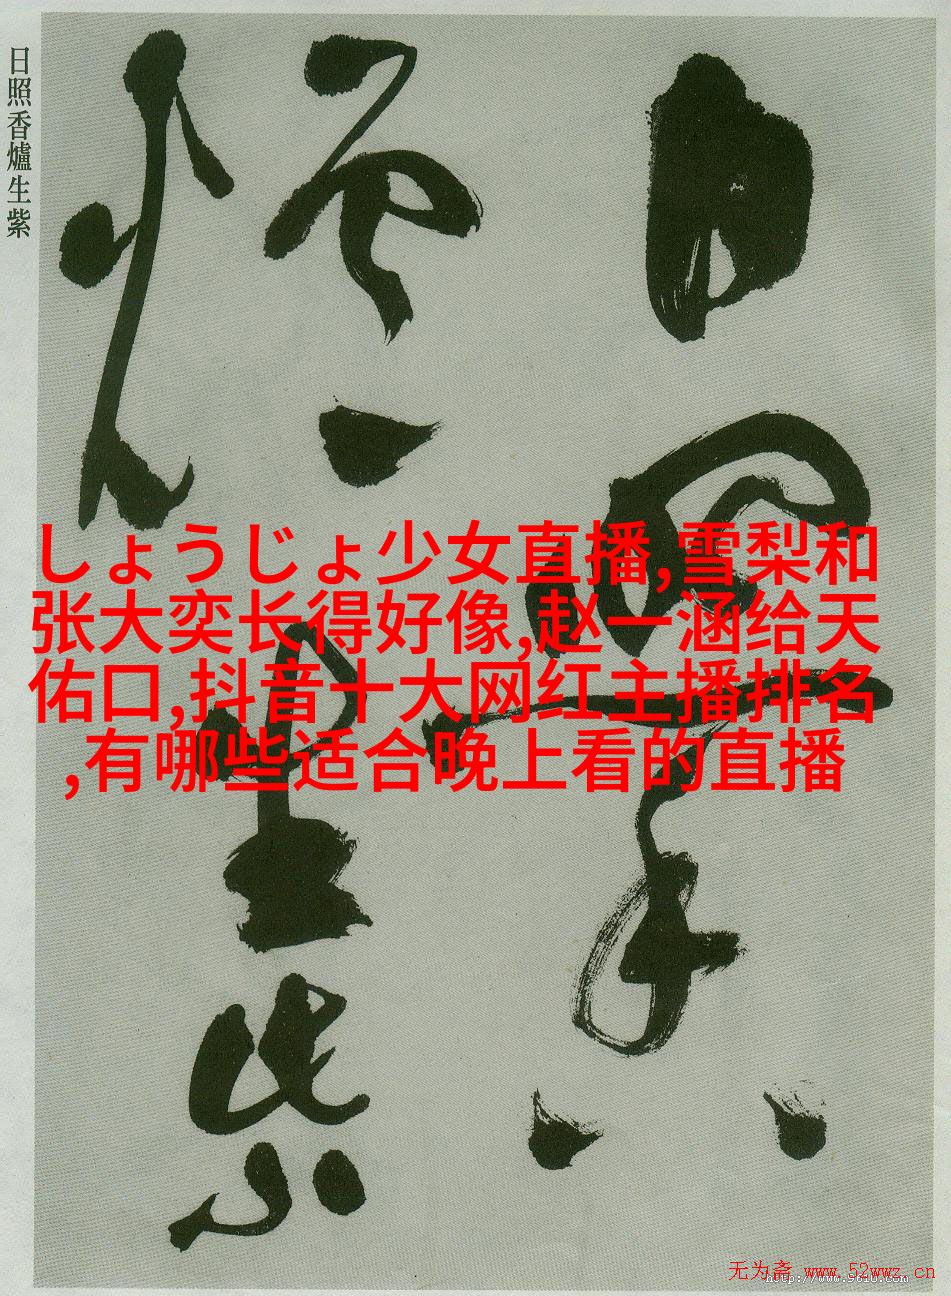 日照香爐生紫
日照香
爐生紫
しょうじょ少女直播,雪梨和
张大奕长得好像,赵一涵给天
佑口,抖音十大网红主播排名
,有哪些适合晚上看的直播
无为斋 www.52wwz.cn
http://www.9610.com